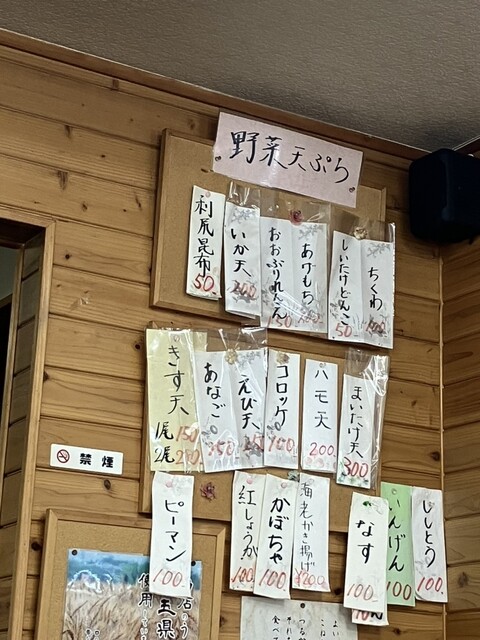 野菜天ぷら
利尻昆布
50.
いか天
200
おおぶりれんこん
150
あげもち
しいたけどんこ
50
ちくわ
100.
きす天
1尾 150
2尾 250
あなご
350
えび天
コロッケ
100
ハモ天
200.
まいたけ天
300
禁煙
ピーマン
100.
紅しょうが
100.
かぼちゃ
100
海老かき揚げ
¥200.
なす
100.
いんげん
100
ししとう
100.